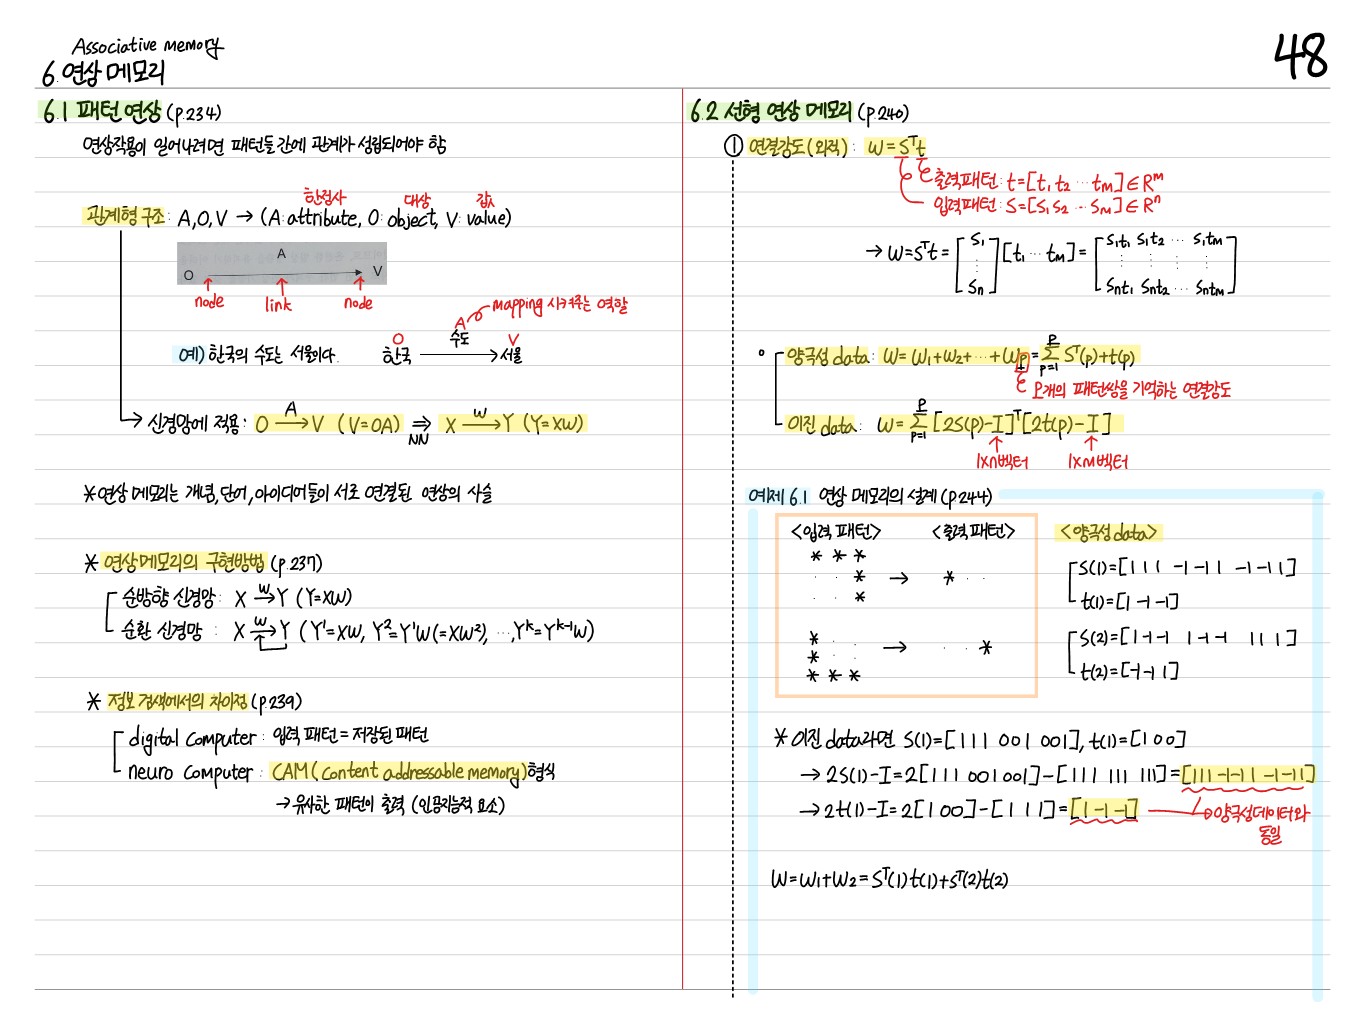 Associative memory
6. 연상 메모리
48
6.1 패턴 연상 (p.234)
연상작용이 일어나려면 패턴들 간에 관계가 성립되어야 함
한정사 대상 값
관계형 구조: A, O, V → (A: attribute, O: object, V: value)
A
O V
node link node
mapping 시켜주는 역할
O A V
예) 한국의 수도는 서울이다. 한국 수도 → 서울
→ 신경망에 적용: O A→ V (V=OA) ⇒ NN X W→ Y (Y=XW)
* 연상 메모리는 개념, 단어, 아이디어들이 서로 연결된 연상의 사슬
* 연상메모리의 구현방법 (p.237)
순방향 신경망: X W→ Y (Y=XW)
순환 신경망 : X W→ Y (Y¹=XW, Y²=Y¹W(=XW²), ⋯, Yᵏ=Yᵏ⁻¹W)
* 정보 검색에서의 차이점 (p.239)
digital computer: 입력 패턴 = 저장된 패턴
neuro computer: CAM (content addressable memory) 형식
→ 유사한 패턴이 출력 (인공지능적 요소)
6.2 선형 연상 메모리 (p.240)
① 연결강도 (외적): W = Sᵀt
출력패턴: t=[t₁ t₂ ⋯ tₘ] ∈ Rᵐ
입력패턴: S=[S₁ S₂ ⋯ Sₘ] ∈ Rⁿ
→ W=Sᵀt = [S₁ ⋮ Sₙ] [t₁ ⋯ tₘ] = [S₁t₁ S₁t₂ ⋯ S₁tₘ ⋮ ⋮ ⋮ ⋮ Sₙt₁ Sₙt₂ ⋯ Sₙtₘ]
양극성 data: W = W₁+W₂+⋯+Wp = Σ p=1 P Sᵀ(p)+t(p)
P개의 패턴쌍을 기억하는 연결강도
이진 data: W = Σ p=1 P [2S(p)-I]ᵀ[2t(p)-I]
1xn벡터 1xm벡터
예제 6.1 연상 메모리의 설계 (p.244)
<입력 패턴> <출력 패턴> <양극성 data>
* * *
· · * → * · ·
· · *
S(1)=[1 1 1 -1 -1 1 -1 -1 1]
t(1)=[1 -1 -1]
* · ·
* · · → · · *
* * *
S(2)=[1 -1 -1 1 -1 -1 1 1 1]
t(2)=[-1 -1 1]
* 이진 data라면 S(1)=[1 1 1 0 0 1 0 0 1], t(1)=[1 0 0]
→ 2S(1)-I=2[1 1 1 0 0 1 0 0 1]-[1 1 1 1 1 1 1 1 1]=[1 1 1 -1 -1 1 -1 -1 1]
→ 2t(1)-I=2[1 0 0]-[1 1 1]=[1 -1 -1]
→ 양극성데이터와 동일
W=W₁+W₂=Sᵀ(1)t(1)+Sᵀ(2)t(2)